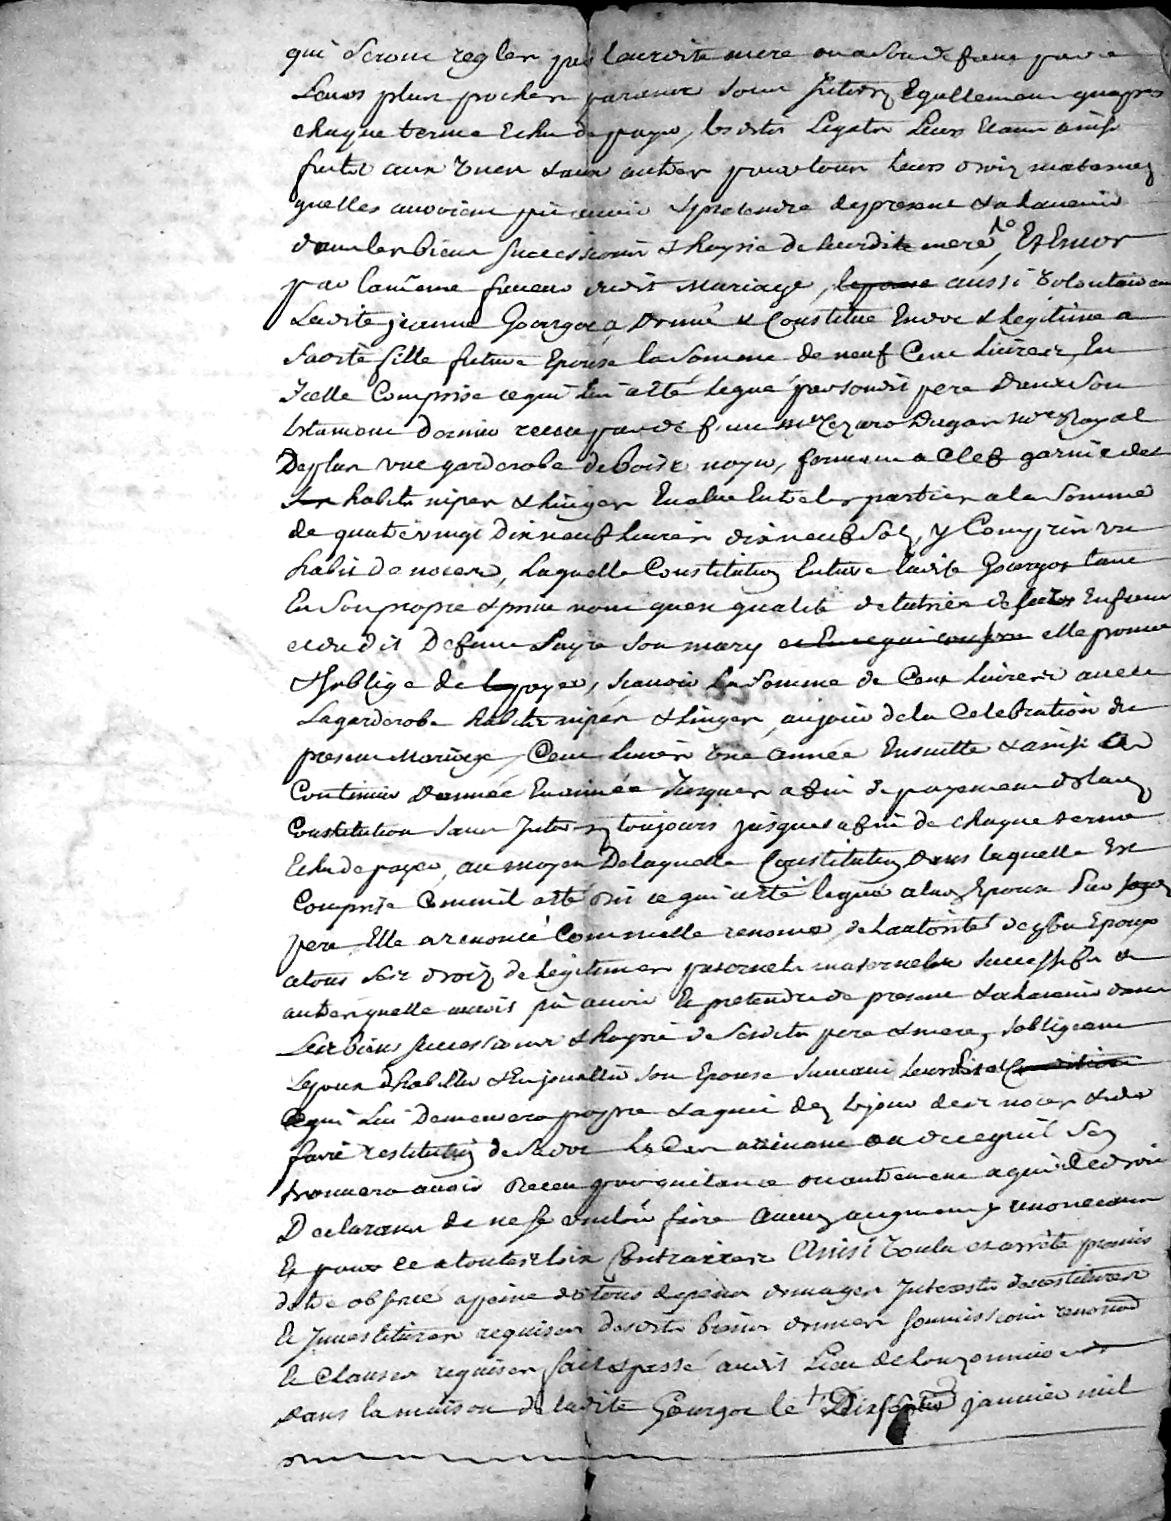 qui seront regler par laurdite mere ou a son deffaut par
Leurs plus proches parants sans Interez Egallement quapres
chaque terme Echu de paye, lesdits Legats Leurs Etant ainsi
faits aux unes & aux autres pour tous leurs droiz maternez
quelles auroient pû avoir & pretendre de present & a lavenir
dans les biens successions & hoyrie de leurdite mere, Et Encor
par la meme faveur dudit Mariage, aussi volontairem
Ladite jeanne Gourgot a Donné & Constitué En dot & legitime a
sadite fille future Epouse la somme de neuf Cent livres, En
Icelle Comprise ce qui lui a été legué par sondit pere Dans son
testament dernier receu par de feu me Dugas nre Royal
De plus une garderobe de bois noyer, fermant a Clef garnie des
habits nipes & linges Evalué Entre les parties a la somme
de quatrevingt Dix neuf livres dix neuf solz, y Compris un
habit de noces, Laquelle Constitution Entiere ladite Gourgot tant
En son propre & privé nom quen qualité de tutrice de ses Enfans
et du dit Defunt son mary elle promet
& soblige de payer, scavoir la somme de Cent livres avec
La garderobe habits nipes & linges, au jour de la Celebration du
present Mariage, Cent livres une année Ensuitte & ainsi
Continuer d'année En année jusques a fin de payement de lad
Constitution sans Interez toujours jusques a fin de chaque terme
Echu de paye, au moyen De laquelle Constitution dans laquelle Est
Comprise Comme il a été dit ce qui a été legué a lad Epouse par son
pere Elle a renoncé Comme elle renonce, de lautorité de sond Epoux
a tous ses droiz de legitimes paternels maternels successifs &
autres quelle auroit pû avoir Et pretendre de present & a lavenir dans
Les biens successions & hoyrie de sesdits pere & mere, sobligeant
Lepoux dhabiller & Enjoueller son Epouse suivant leurdite Condition
Ce qui Lui Demeurera propre & aquis dez le jour de ses noces & de
faire restitution de sa dot le Cas avenant ou de ce quil se
trouvera avoir Receu par quitance ou autrement a qui de droit
Declarant de ne se vouloir faire aucun augment y renoncant
Et pour ce a toutes loix Contraires Ainsi voulu et arrêté promis
detre observé a peine de tous depens domages Interests
Et Investitures requises desdits biens soumissions renond
& Clauses requises fait & passé audit Lieu de
dans la maison de ladite Gourgot le Dixseptie janvier mil